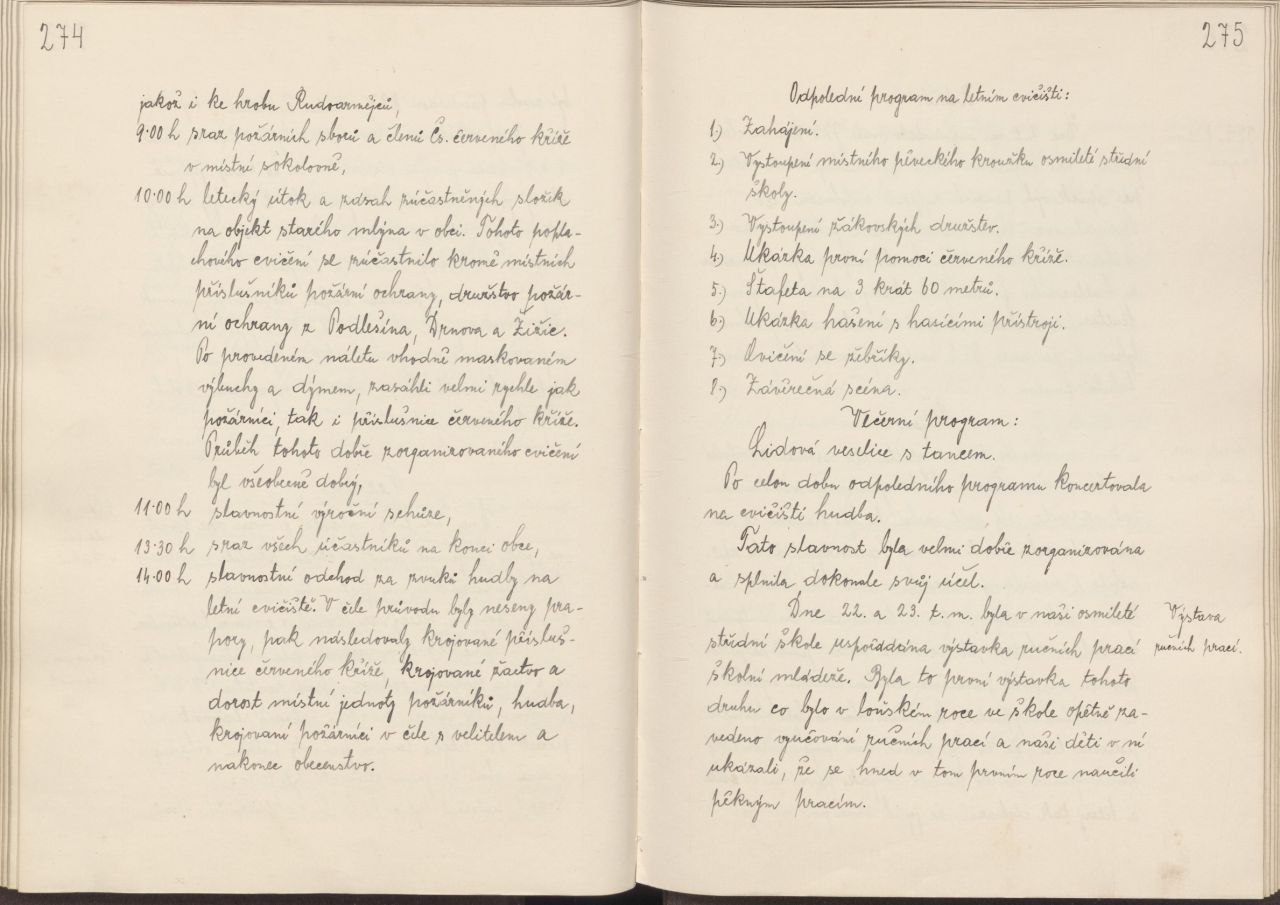 274
jakož i ke hrobu Rudoarmějců,
9·00 h sraz požárních sborů a členů Čs. červeného kříže
v místní sokolovně,
10·00 h letecký útok a zásah zúčastněných složek
na objekt starého mlýna v obci. Tohoto popla-
chového cvičení se zúčastnilo kromě místních
příslušníků požární ochrany, družstvo požár-
ní ochrany z Podlešína, Drnova a Žižic.
Po provedeném náletu vhodně maskovaném
výbuchy a dýmem, zasáhli velmi rychle jak
požárníci, tak i příslušnice červeného kříže.
Průběh tohoto dobře zorganizovaného cvičení
byl všeobecně dobrý,
11·00 h slavnostní výroční schůze,
13·30 h sraz všech účastníků na konci obce,
14·00 h slavnostní odchod za zvuků hudby na
letní cvičiště. V čele průvodu byly neseny pra-
pory, pak následovaly krojované přísluš-
nice červeného kříže, krojované žactvo a
dorost místní jednoty požárníků, hudba,
krojovaní požárníci v čele s velitelem a
nakonec obecenstvo.
275
Odpolední program na letním cvičišti:
1.) Zahájení.
2.) Vystoupení místního pěveckého kroužku osmileté střední
školy.
3.) Vystoupení žákovských družstev.
4.) Ukázka první pomoci červeného kříže.
5.) Štafeta na 3 krát 60 metrů.
6.) Ukázka hašení s hasícími přístroji.
7.) Cvičení se žebříky.
8.) Závěrečná scéna.
Večerní program:
Lidová veselice s tancem.
Po celou dobu odpoledního programu koncertovala
na cvičišti hudba.
Tato slavnost byla velmi dobře zorganizována
a splnila dokonale svůj účel.
Dne 22. a 23. t. m. byla v naší osmileté
střední škole uspořádána výstavka ručních prací
školní mládeže. Byla to první výstavka tohoto
druhu co bylo v loňském roce ve škole opětně za-
vedeno vyučování ručních prací a naši děti v ní
ukázali, že se hned v tom prvním roce naučili
pěkným pracím.
Výstava
ručních prací.